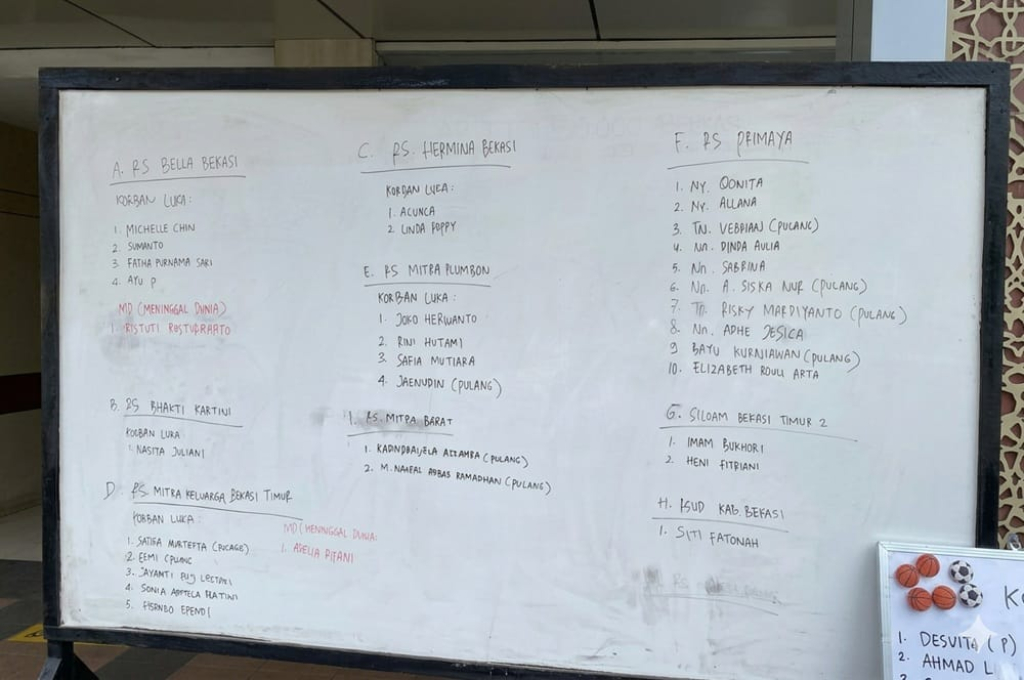 A. RS BELLA BEKASI
KORBAN LUKA:
1. MICHELLE CHIN
2. SUMANTO
3. FATHA PURNAMA SARI
4. AYU P
MD (MENINGGAL DUNIA)
1. RISTUTI
B. RS BHAKTI KARTINI
KORBAN LUKA
1. NASITA JULIANI
D. RS. MITRA KELUARGA BEKASI TIMUR
KORBAN LUKA:
1. SATIFA
2. FEMI
3. JAYANTI
4. SONIA
5. EPENDI
MD (MENINGGAL DUNIA:
1. ADELIA
C. RS. HERMINA BEKASI
KORBAN LUKA:
1. ACUNCA
2. LINDA POPPY
E. RS MITRA PLUMBON
KORBAN LUKA:
1. JOKO HERWANTO
2. RINI HUTAMI
3. SAFIA MUTIARA
4. JAENUDIN (PULANG)
I. RS. MITRA BARAT
1. (PULANG)
2. M. ABBAS RAMADHAN (PULANG)
F. RS PRIMAYA
1. NY. QONITA
2. NY. ALLANA
3. TN. VEBRIAN (PULANG)
4. Nn. DINDA AULIA
5. Nn. SABRINA
6. Nn. A. SISKA NUR (PULANG)
7. Tn. RISKY MARDIYANTO (PULANG)
8. Nn. ADHE JESICA
9 BAYU KURNIAWAN (PULANG)
10. ELIZABETH ROULI ARTA
G. SILOAM BEKASI TIMUR 2
1. IMAM BUKHORI
2. HENI FITRIANI
H. RSUD KAB. BEKASI
1. SITI FATONAH
1. DESVITA (P)
2. AHMAD
3.